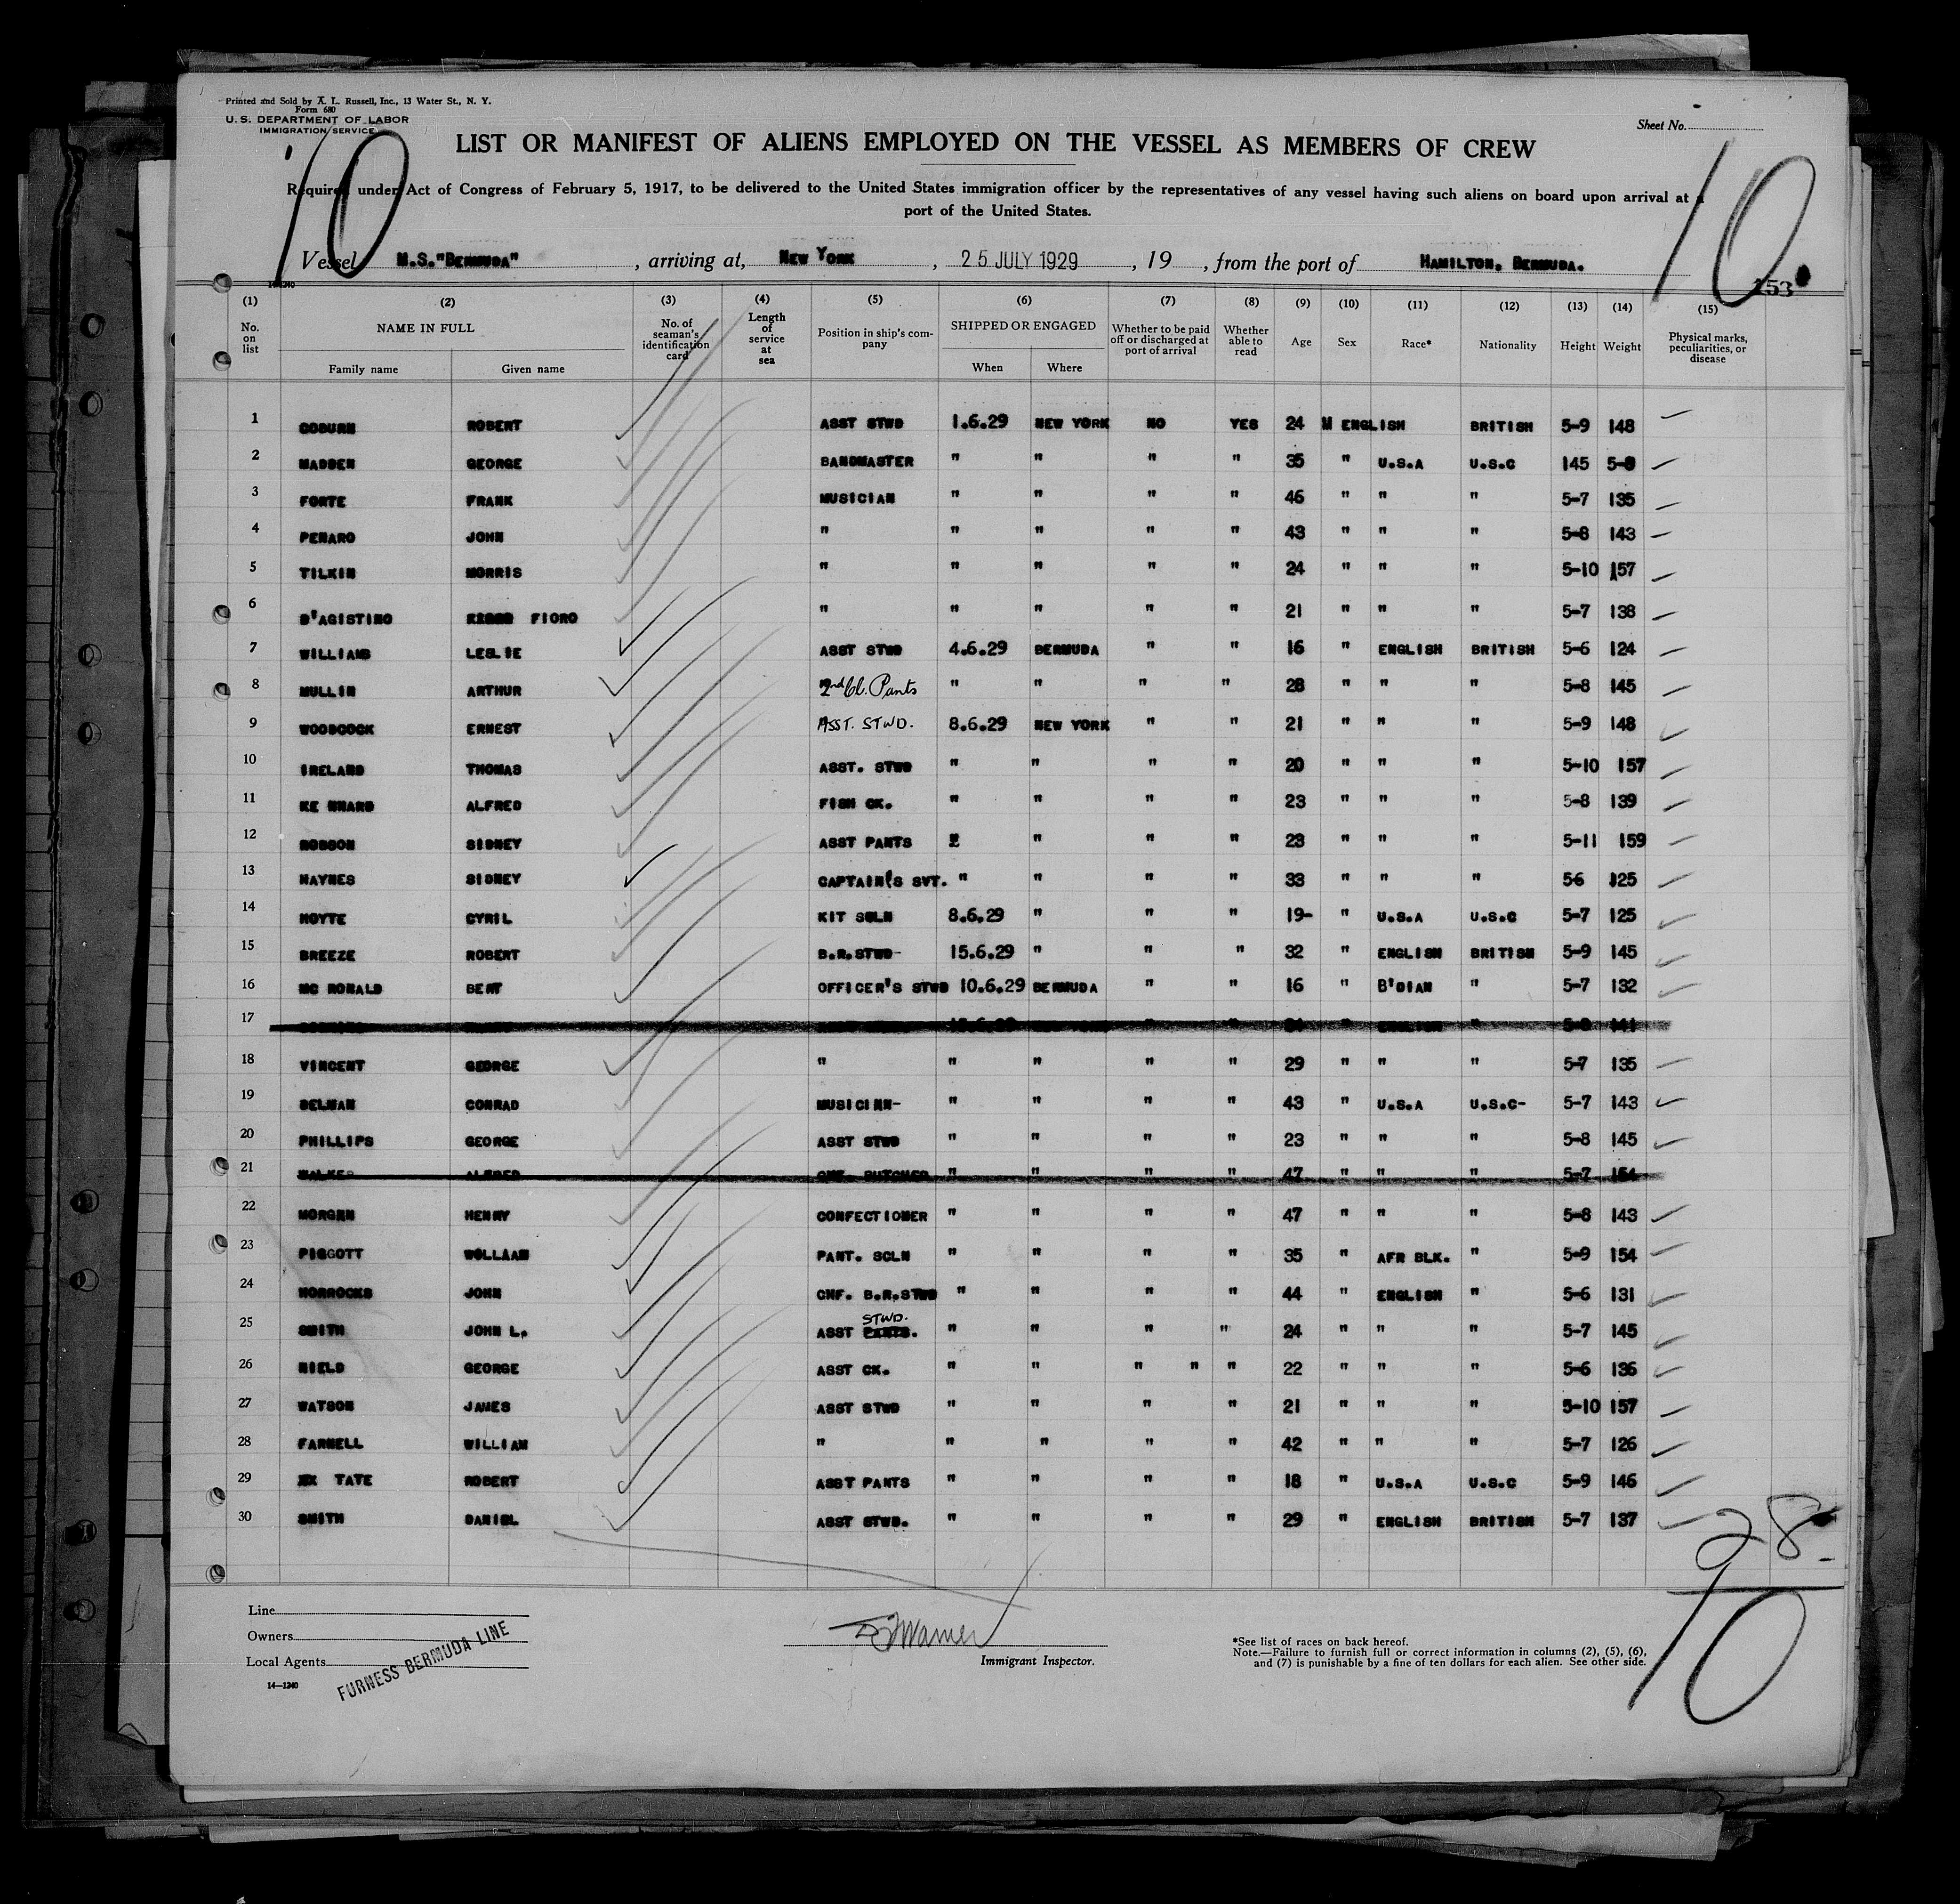 Printed and Sold by A. L. Russell, Inc., 13 Water St., N. Y.
Form 680
U. S. DEPARTMENT OF LABOR
IMMIGRATION SERVICE
Sheet No.
10
10
LIST OR MANIFEST OF ALIENS EMPLOYED ON THE VESSEL AS MEMBERS OF CREW
Required under Act of Congress of February 5, 1917, to be delivered to the United States immigration officer by the representatives of any vessel having such aliens on board upon arrival at a
port of the United States.
Vessel M.S."BERMUDA" , arriving at, NEW YORK , 25 JULY 1929 , 19 , from the port of HAMILTON, BERMUDA.
14-1240
153
(1) (2) (3) (4) (5) (6) (7) (8) (9) (10) (11) (12) (13) (14) (15)
No. on list NAME IN FULL Family name Given name No. of seaman's identification card Length of service at sea Position in ship's company SHIPPED OR ENGAGED When Where Whether to be paid off or discharged at port of arrival Whether able to read Age Sex Race* Nationality Height Weight Physical marks, peculiarities, or disease
1 COBURN ROBERT ASST STWD 1.6.29 NEW YORK NO YES 24 M ENGLISH BRITISH 5-9 148
2 MADDEN GEORGE BANDMASTER " " " " 35 " U.S.A U.S.C 145 5-8
3 FORTE FRANK MUSICIAN " " " " 46 " " " 5-7 135
4 PENARO JOHN " " " " " 43 " " " 5-8 143
5 TILKIN MORRIS " " " " " 24 " " " 5-10 157
6 D'AGISTINO FIORO " " " " " 21 " " " 5-7 138
7 WILLIAMS LESLIE ASST STWD 4.6.29 BERMUDA " " 16 " ENGLISH BRITISH 5-6 124
8 MULLIN ARTHUR 2nd Cl. Pants " " " " 28 " " " 5-8 145
9 WOODCOCK ERNEST ASST. STWD. 8.6.29 NEW YORK " " 21 " " " 5-9 148
10 IRELAND THOMAS ASST. STWD " " " " 20 " " " 5-10 157
11 KE NNARD ALFRED FISH CK. " " " " 23 " " " 5-8 139
12 ROBSON SIDNEY ASST PANTS " " " " 23 " " " 5-11 159
13 HAYNES SIDNEY CAPTAIN'S SVT. " " " " 33 " " " 56 125
14 HOYTE CYRIL KIT SCLN 8.6.29 " " " 19- " U.S.A U.S.C 5-7 125
15 BREEZE ROBERT B.R.STWD- 15.6.29 " " " 32 " ENGLISH BRITISH 5-9 145
16 MC RONALD BERT OFFICER'S STWD 10.6.29 BERMUDA " " 16 " B'DIAN " 5-7 132
17
18 VINCENT GEORGE " " " " " 29 " " " 5-7 135
19 CONRAD MUSICINN- " " " " 43 " U.S.A U.S.C- 5-7 143
20 PHILLIPS GEORGE ASST STWD " " " " 23 " " " 5-8 145
21 WALKER ALFRED CHF. BUTCHER " " " " 47 " " " 5-7 154
22 MORGAN HENRY CONFECTIONER " " " " 47 " " " 5-8 143
23 PIGGOTT WOLLAAM PANT. SCLN " " " " 35 " AFR BLK. " 5-9 154
24 HORROCKS JOHN CHF. B.R.STWD " " " " 44 " ENGLISH " 5-6 131
25 SMITH JOHN L. ASST PANTS. STWD. " " " " 24 " " " 5-7 145
26 NIELD GEORGE ASST CK. " " " " " 22 " " " 5-6 136
27 WATSON JAMES ASST STWD " " " " 21 " " " 5-10 157
28 FARNELL WILLIAM " " " " " 42 " " " 5-7 126
29 TATE ROBERT ASST PANTS " " " " 18 " U.S.A U.S.C 5-9 146
30 SMITH DANIEL ASST STWD. " " " " 29 " ENGLISH BRITISH 5-7 137
28
10
Line
Owners
Local Agents
FURNESS BERMUDA LINE
14-1240
Immigrant Inspector.
*See list of races on back hereof.
Note.—Failure to furnish full or correct information in columns (2), (5), (6),
and (7) is punishable by a fine of ten dollars for each alien. See other side.